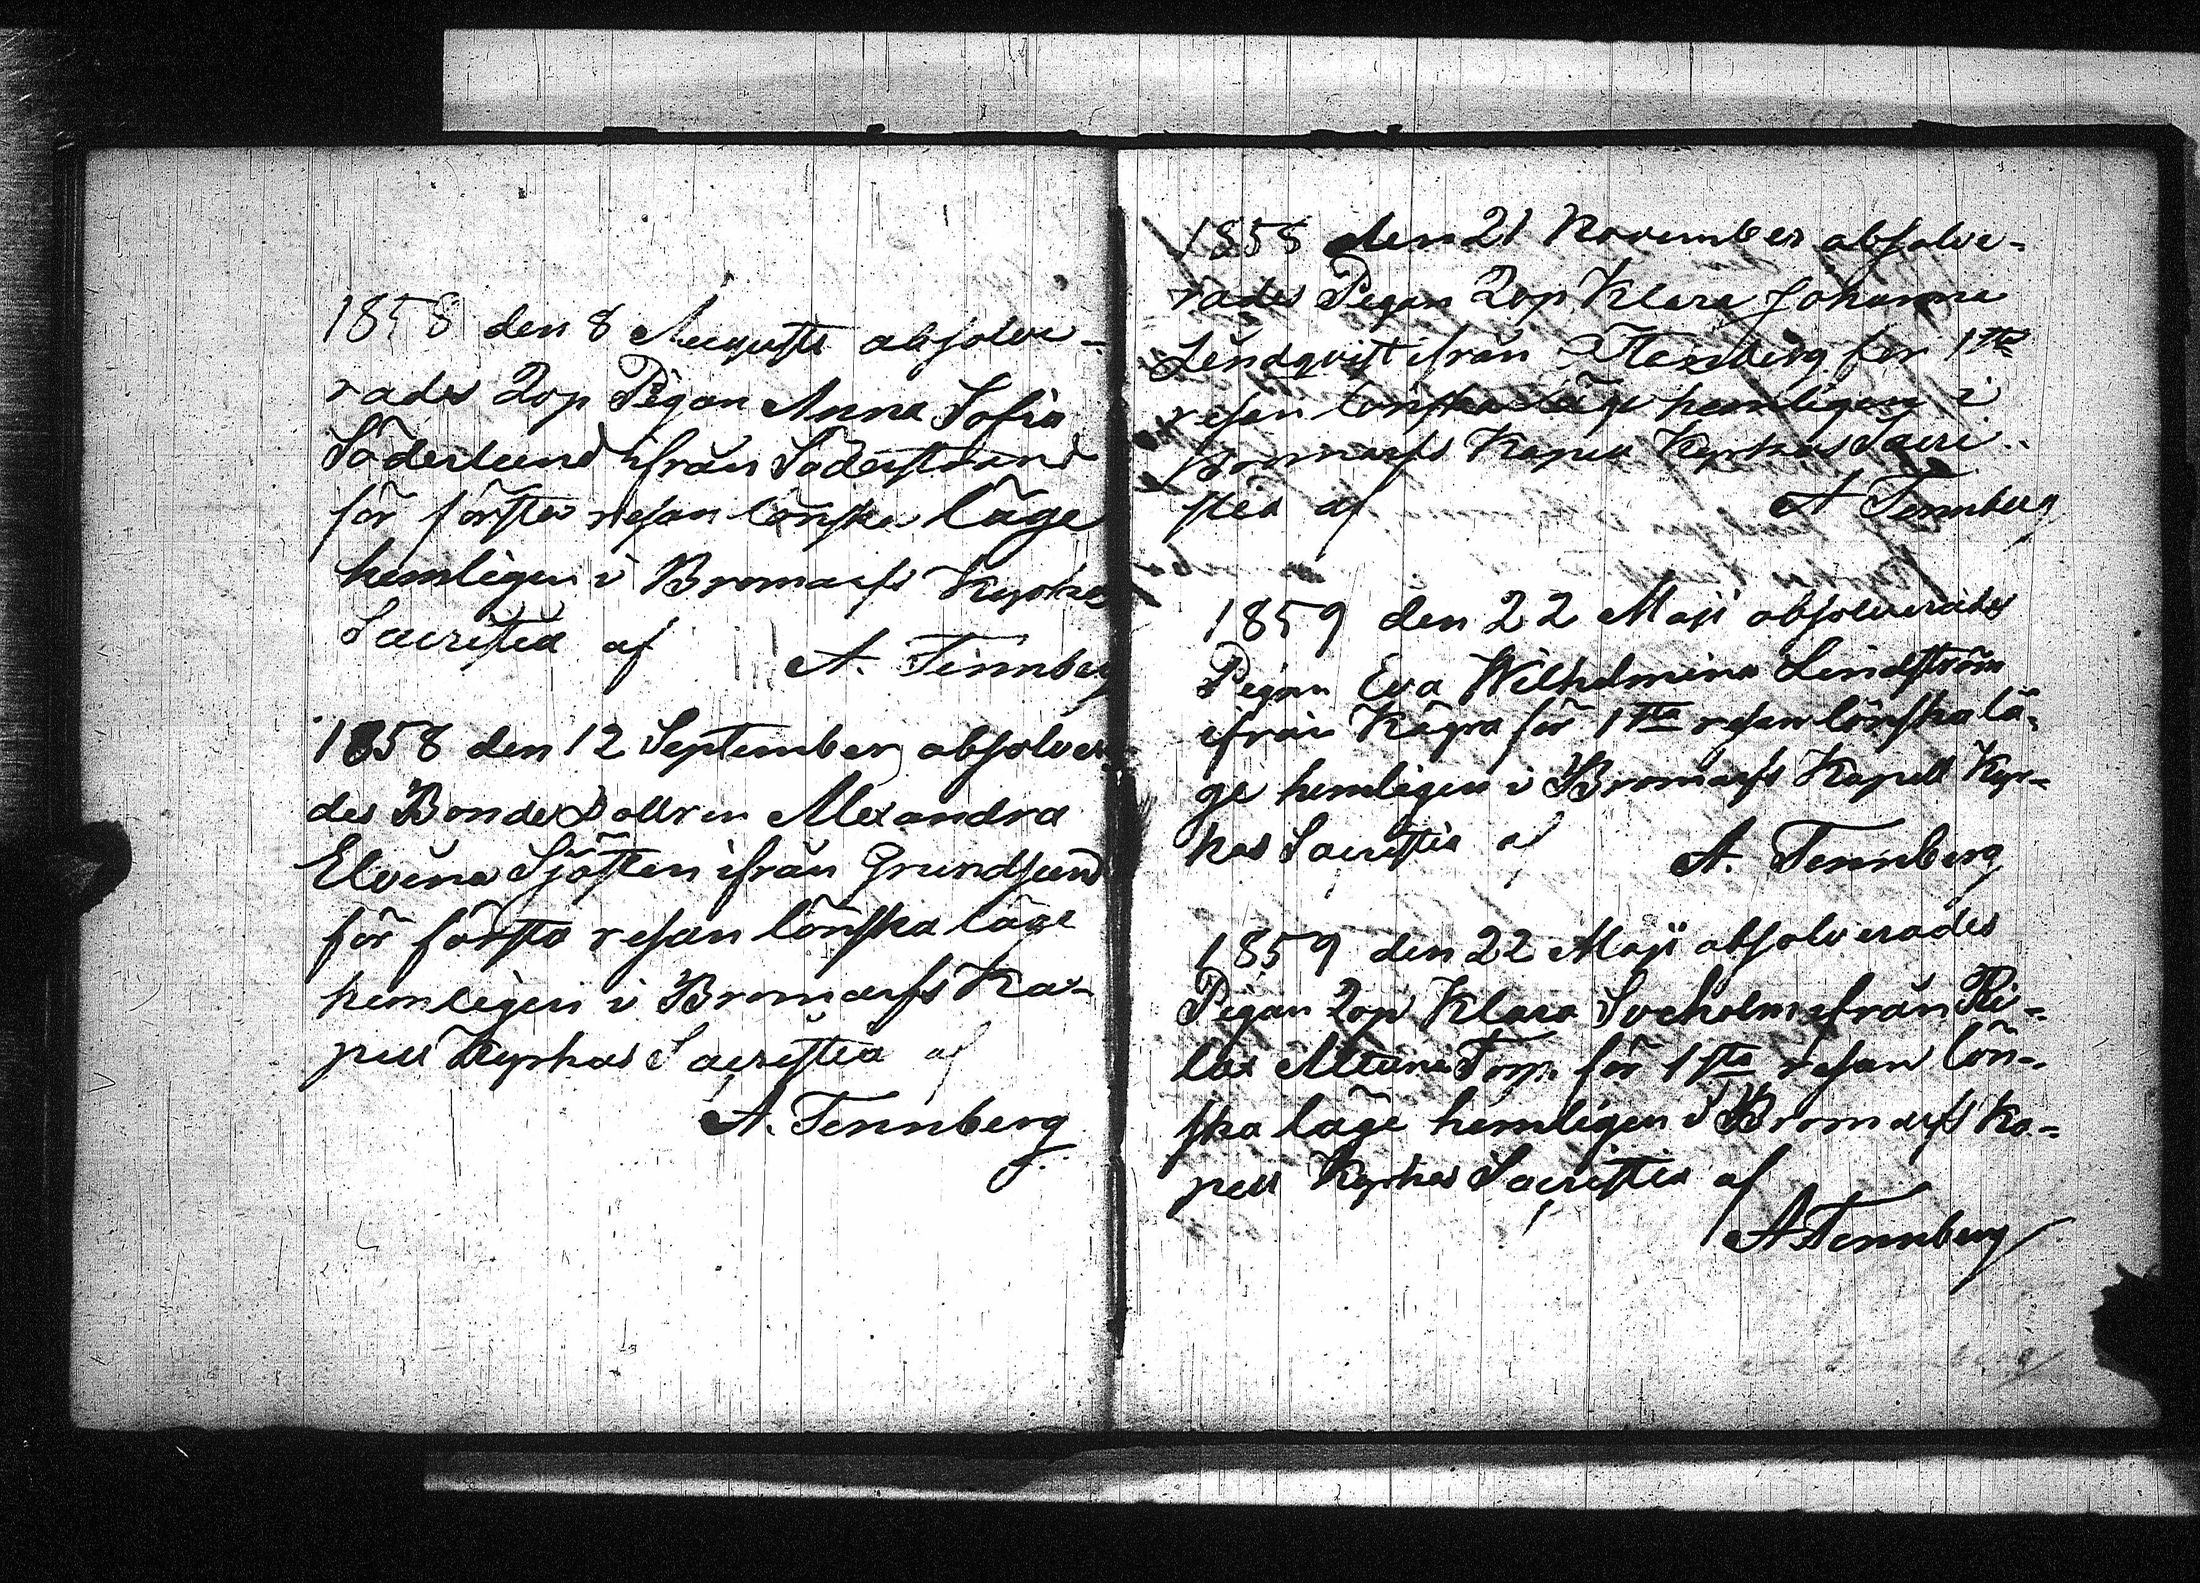 1858 den 8 Augusti absolve-
rades Qop Pigan Anna Sofia
Söderlund ifrån Söderstrand
för första resan lönska läge
hemligen i Bromarfs Kyrkas
Sacristia af
A. Tennberg
1858 den 12 September absolvera
des Bonde Dottren Alexandra
Elvina Sjösten ifrån Grundsund
för första resan lönska läge
hemligen i Bromarfs Ka-
pell Kyrkas Sacristia af
A. Tennberg
1858 den 21 November absolve-
rades Pigan Qop Klara Johanna
Lendqvist ifrån för 1sta
resan lönska läge hemligen i
Bromarfs Kapell Kyrkas Sacri-
stia af A Tennberg
1859 den 22 Maji absolverades
Pigan Eva Wilhelmina Lindström
ifrån Kägra för 1sta resan lönska lä-
ge hemligen i Bromarfs Kapell Kyr-
kas Sacristia af
A. Tennberg
1859 den 22 Maji absolverades
Pigan Qop Klara Soeholm ifrån Ri-
lax Torp för 1sta resan lön-
ska läge hemligen i Bromarfs Ka-
pell Kyrkas Sacristia af
A Tennberg